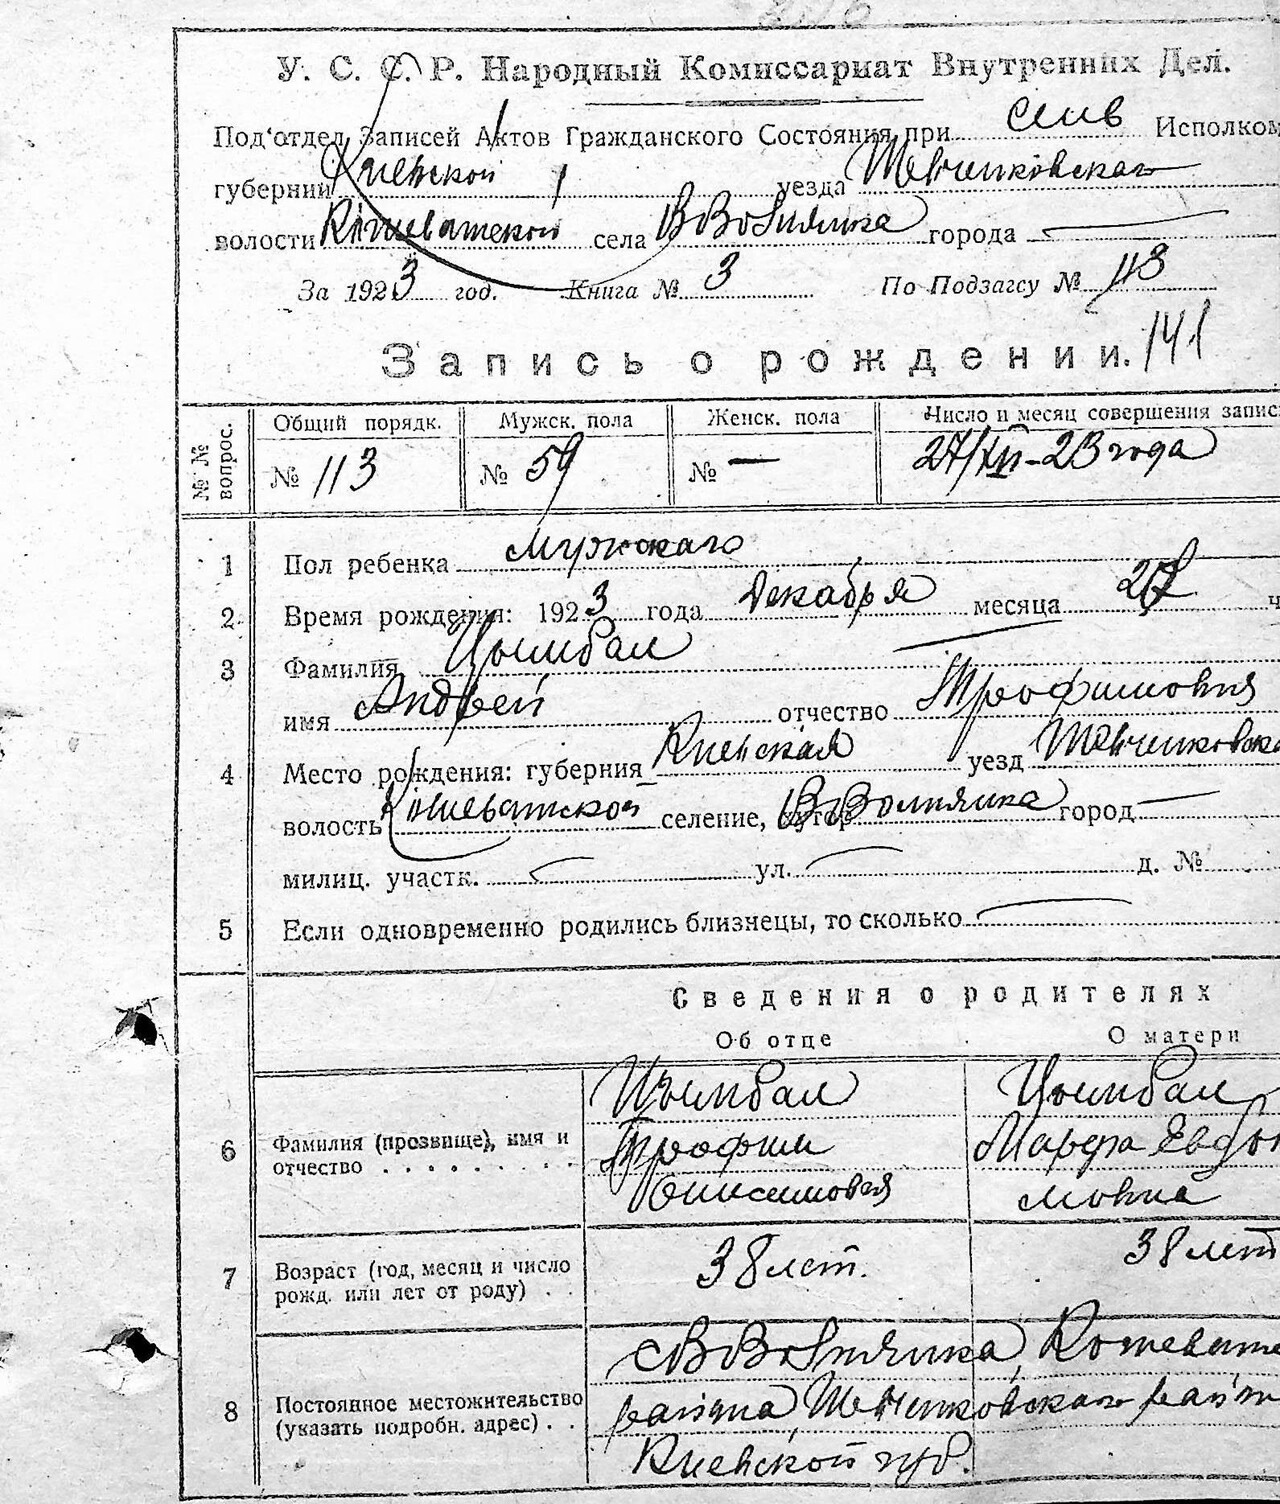 У. С. С. Р. Народный Комиссариат Внутренних Дел.
Под'отдел Записей Актов Гражданского Состояния при Исполком
губернии Киевской уезда Шевченковскаго
волости Кошеватской села ВВовнянка города —
За 1923 год. Книга № 3 По Подзагсу № 113
Запись о рождении. 141
№ № вопрос. Общий порядк. Мужск. пола Женск. пола Число и месяц совершения запис
№ 113 № 59 № — 27/XII-23 года
1 Пол ребенка мужскаго
2 Время рождения: 1923 года Декабря месяца ч
3 Фамилия Цымбал
имя Андрей отчество Трофимович
4 Место рождения: губерния Киевская уезд Шевченковска
волость Кошеватской селение, хутор город —
милиц. участк. — ул. — д. №
5 Если одновременно родились близнецы, то сколько —
Сведения о родителях
Об отце О матери
6 Фамилия (прозвище), имя и отчество . . . . . . . . .
Цымбал Цымбал
Трофим Марфа Евдо
Онисимович мовна
7 Возраст (год, месяц и число рожд. или лет от роду) . .
38 лет. 38 лет
8 Постоянное местожительство (указать подробн. адрес) . .
Кошеватс
района Шевченковскаго
Киевской губ.